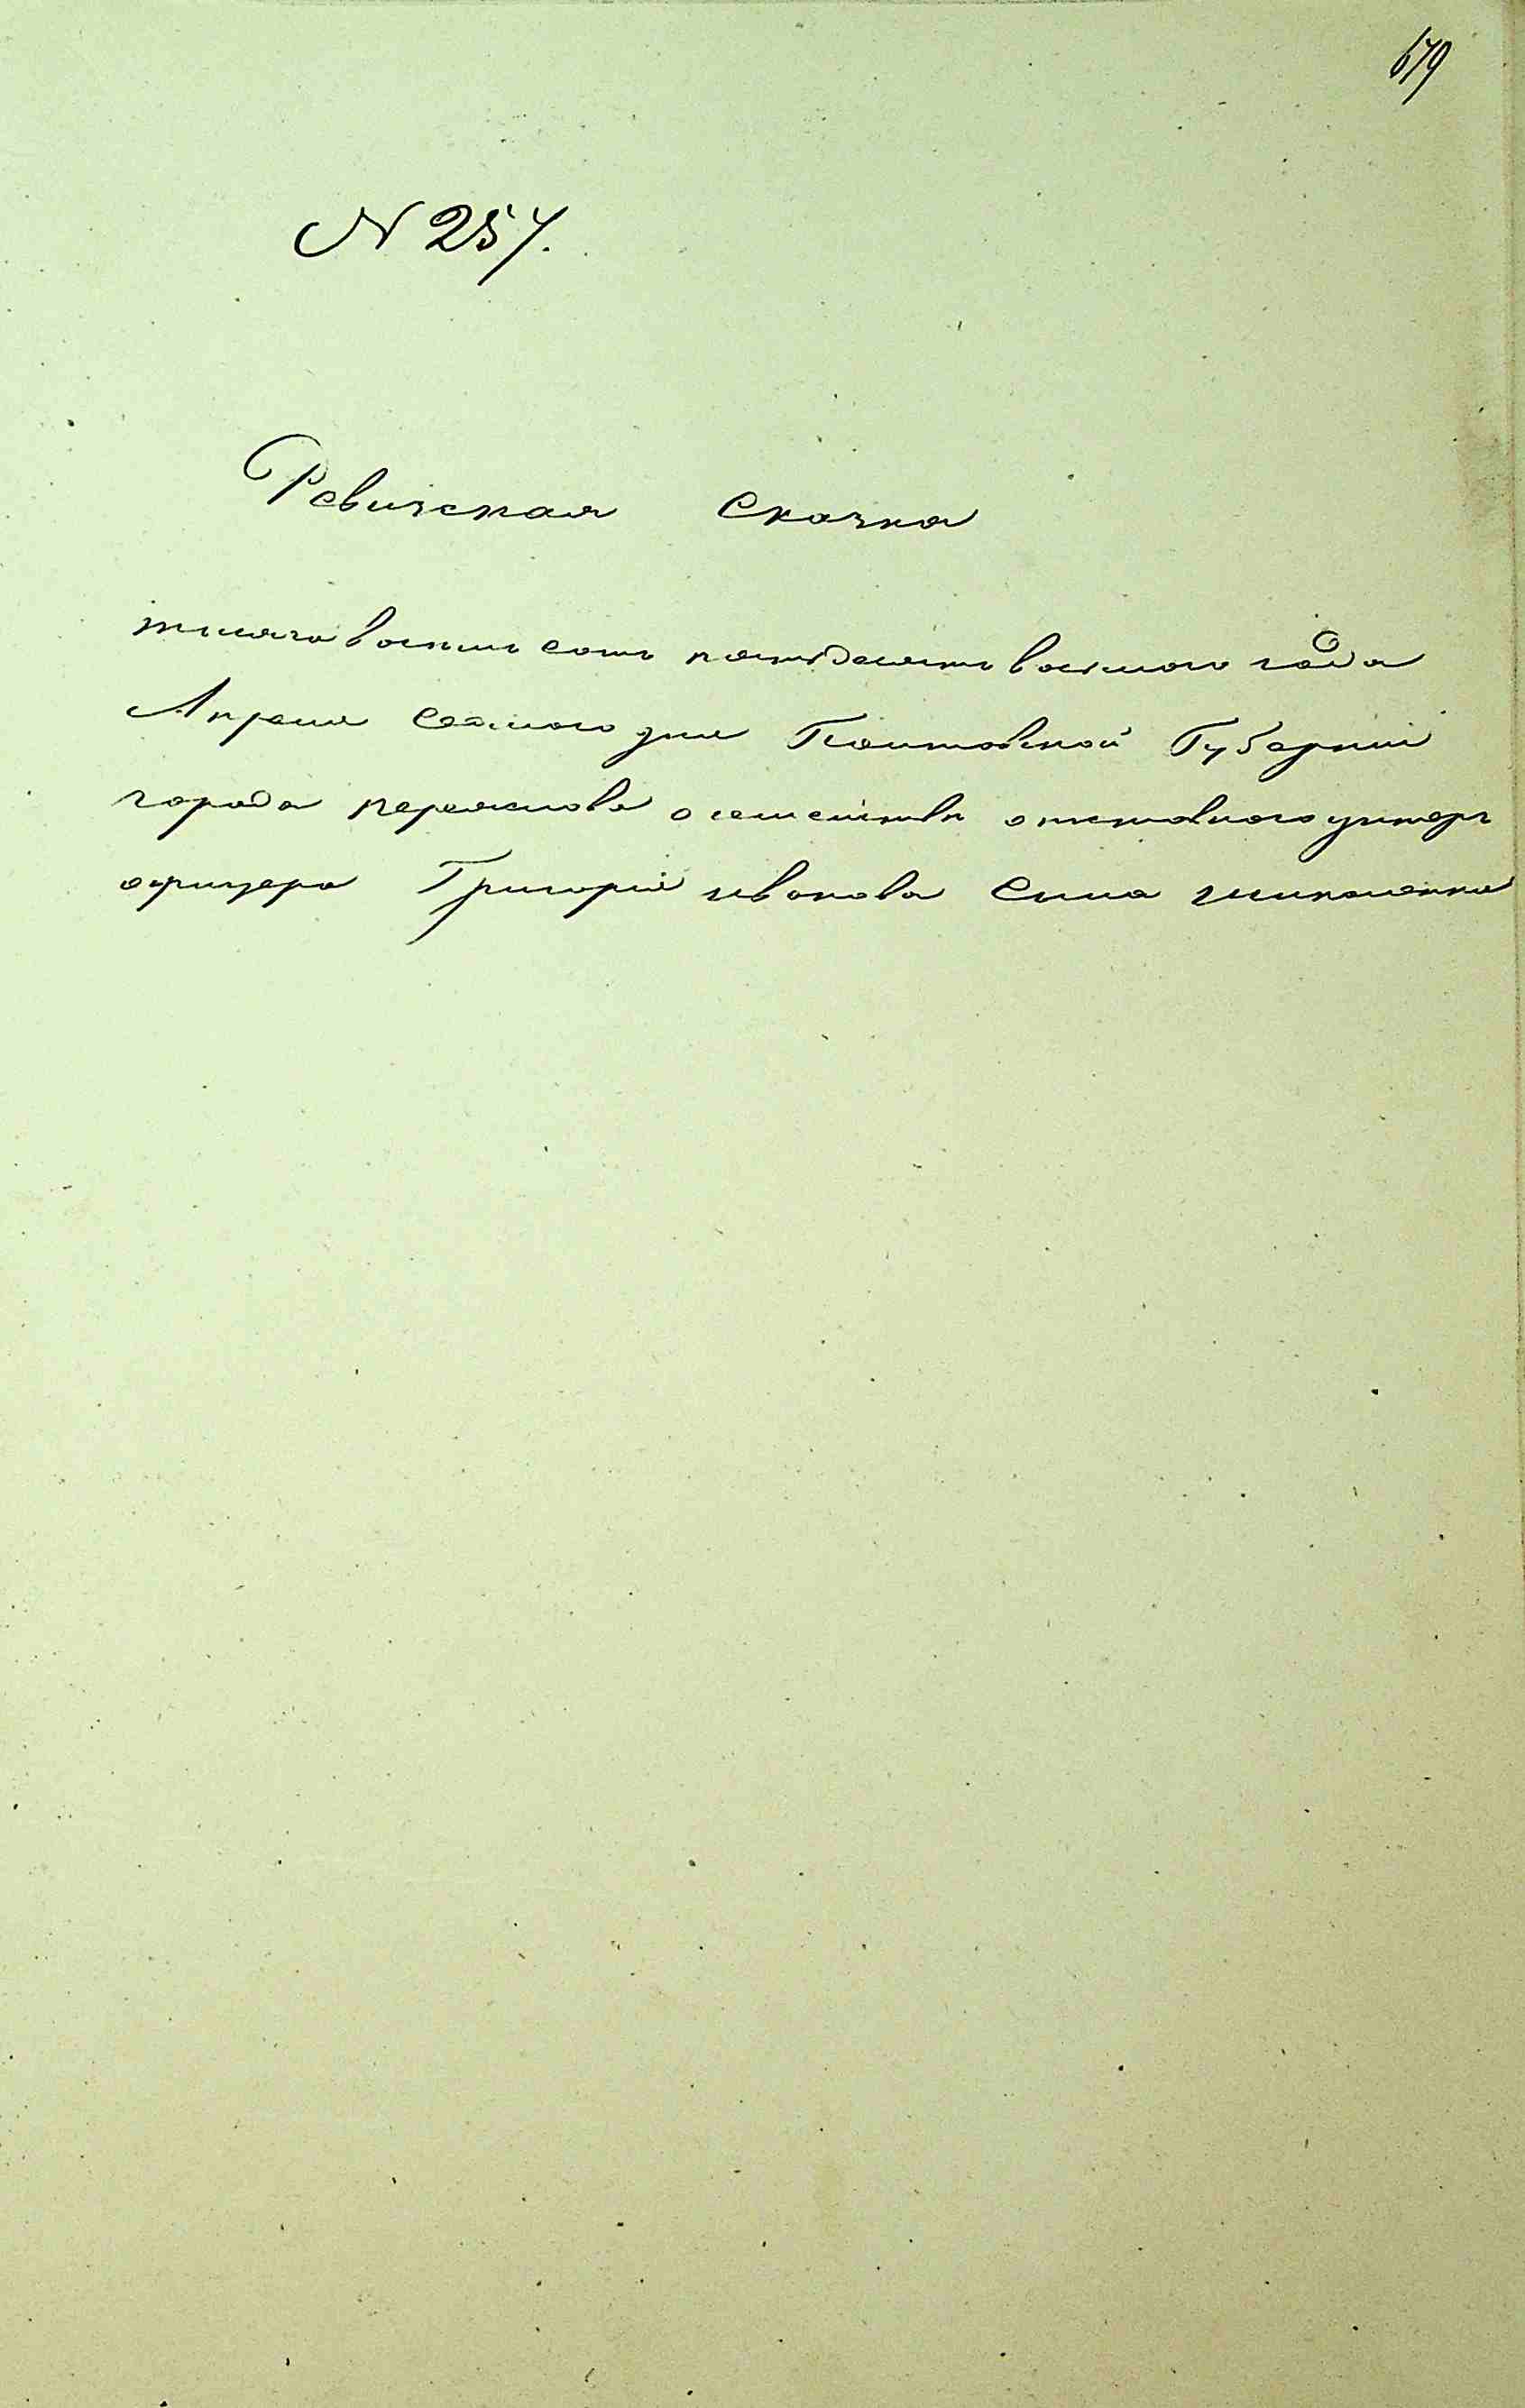 679
N 257.
Ревизская Сказка
тысяча восемь сотъ пятьдесятъ восьмого года
Апреля Седмого дня Полтавской Губерніи
города переяслова о семействѣ отставного унтеръ
офицера Григорія иванова Сына